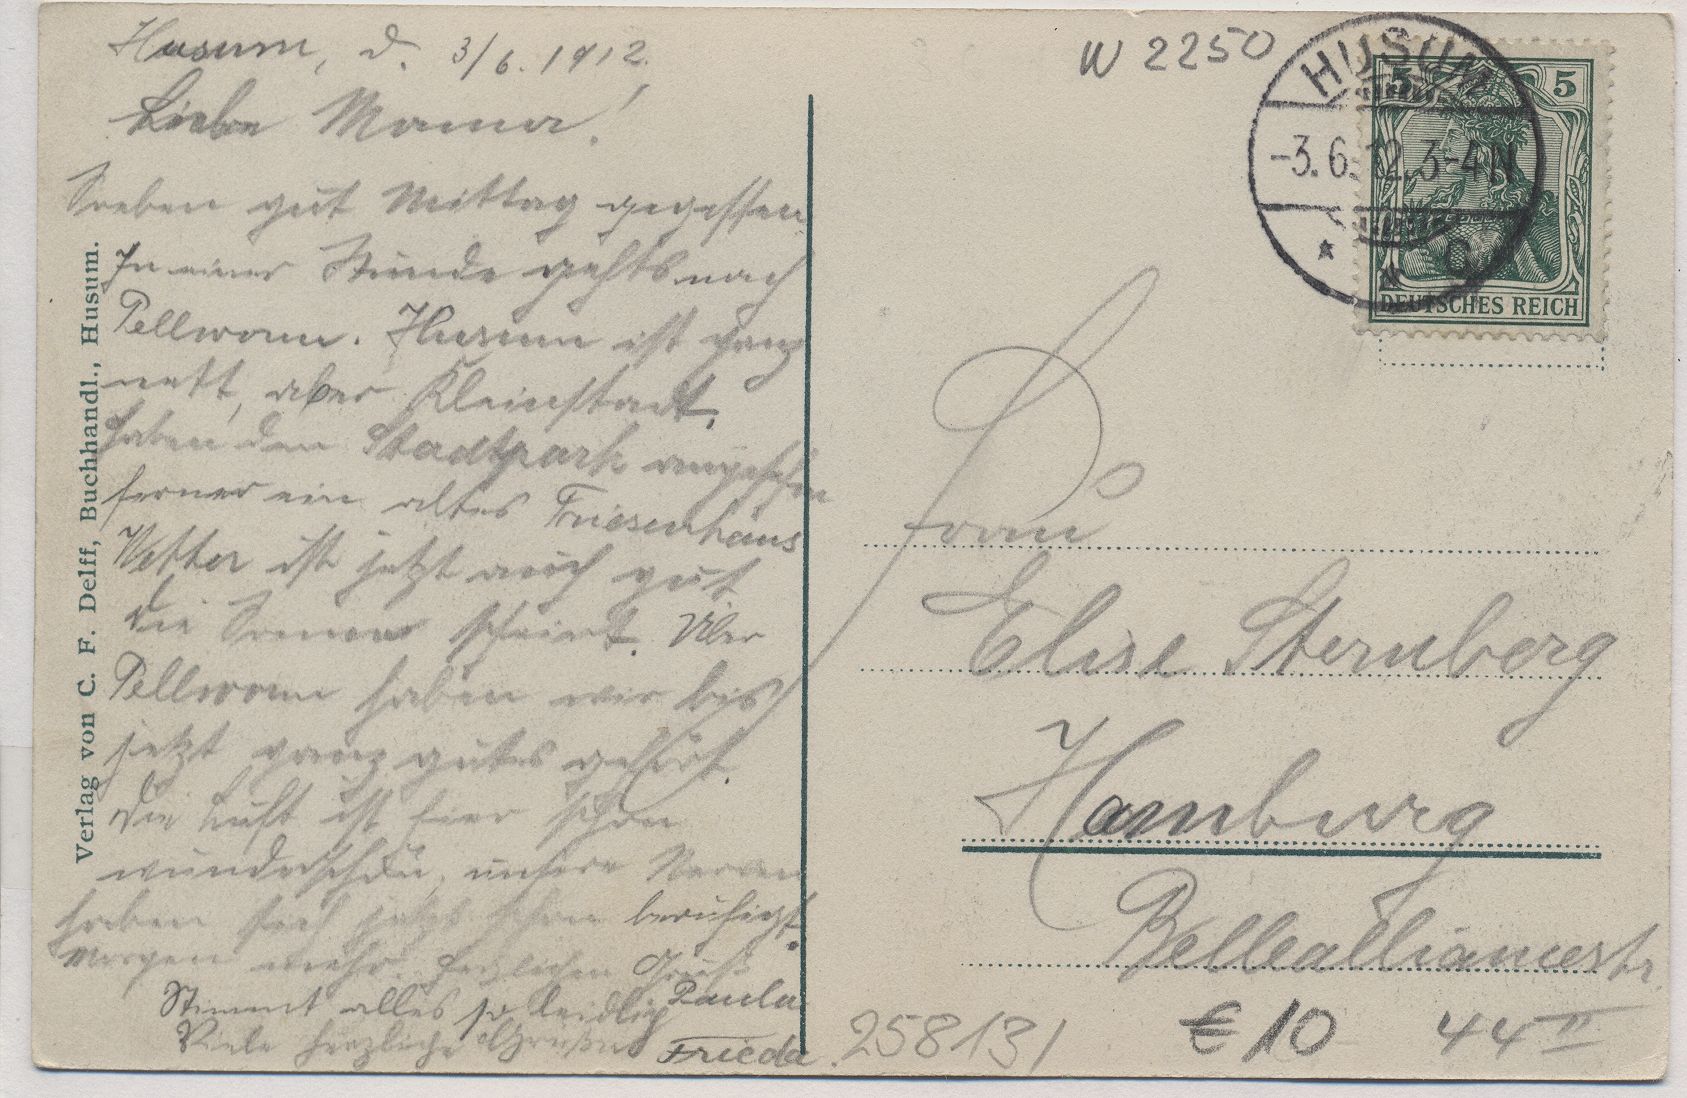 Husum, d. 3/6. 1912.
Liebe Mama!
Soeben gut Mittag gegessen
In einer Stunde gehts nach
Pellworm. Husum ist ganz
nett, aber Kleinstadt.
haben den Stadtpark angesehen
ferner ein altes Friesenhaus
Wetter ist jetzt auch gut
die Sonne scheint. Über
Pellworm haben wir bis
jetzt ganz gutes gehört.
Die Luft ist hier schon
wunderschön, unsere Nerven
haben sich jetzt schon beruhigt.
Morgen mehr. Herzlichen Gruß
Paula
Stimmt alles so leidlich
Viele herzliche Grüße Frieda.
Verlag von C. F. Delff, Buchhandl., Husum.
W 2250
HUSUM
-3.6.12.3-4N
* * C
5 5
DEUTSCHES REICH
Frau
Elise Sternberg
Hamburg
Bellealliancestr.
44 II
258131
€ 10